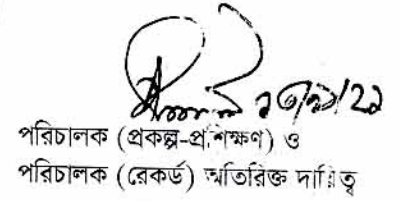 পরিচালক (প্রকল্প-প্রশিক্ষণ) ও
পরিচালক (রেকর্ড) অতিরিক্ত দায়িত্ব